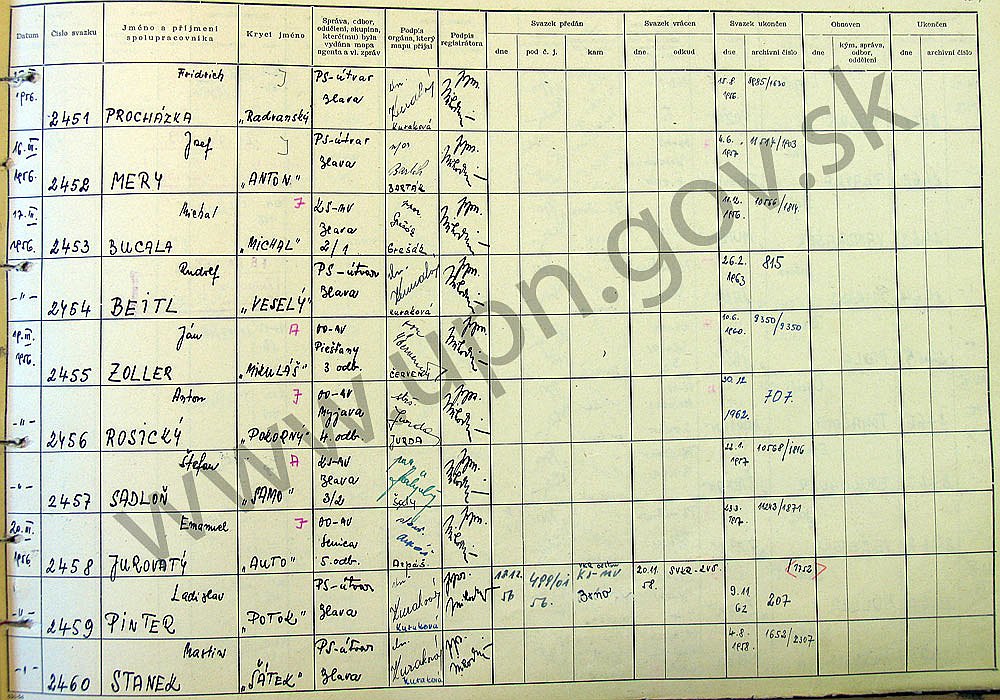 Datum
Číslo svazku
Jméno a příjmení spolupracovníka
Krycí jméno
Správa, odbor, oddělení, skupina, které(mu) byla vydána mapa agenta a vl. zpráv
Podpis orgána, který mapu přijal
Podpis registrátora
Svazek předán
dne
pod č. j.
kam
Svazek vrácen
dne
odkud
Svazek ukončen
dne
archivní číslo
Obnoven
dne
kým, správa, odbor, oddělení
Ukončen
dne
archivní číslo
1956. 2451 Fridrich PROCHÁZKA J "Radvanský" PS-útvar Ilava Kuraková 15.8. 1956. 8985/1630
16. III. 1956. 2452 Jozef MERY J "ANTON" PS-útvar Ilava BARTÁK 4.6. 1957 11517/1903
17. III. 1956. 2453 Michal BUCALA J "MICHAL" KS-MV Ilava 2/1 11.12. 1956. 10566/1814.
-"- 2454 Rudolf BEITL "VESELÝ" PS-útvar Ilava Kuraková 26.2. 1963 815
19. III. 1956. 2455 Ján ZOLLER A "MIKULÁŠ" OO-MV Piešťany 3 odb. ČERVENÝ 10.6. 1960. 9350/9350
-"- 2456 Anton ROSICKÝ J "POKORNÝ" OO-MV Myjava 4. odb. JURDA 30.12 1962. 707.
-"- 2457 Štefan SADLOŇ A "SAMO" KS-MV Ilava 3/2 22.1. 1957 10568/1816
20. III. 1956 2458 Emanuel JUROVATÝ J "AUTO" OO-MV Senica 5. odb. Arpáš. 11243/1871
-"- 2459 Ladislav PINTER "POTOK" PS-útvar Ilava Kuraková 18.12. 56 499/01 56. KS-MV Brno 20.11. 58. 1752 9.11 62 207
-"- 2460 Martin STANEK "ŠÁTEK" PS-útvar Ilava Kuraková 4.8. 1958. 1652/2307
www.upn.gov.sk